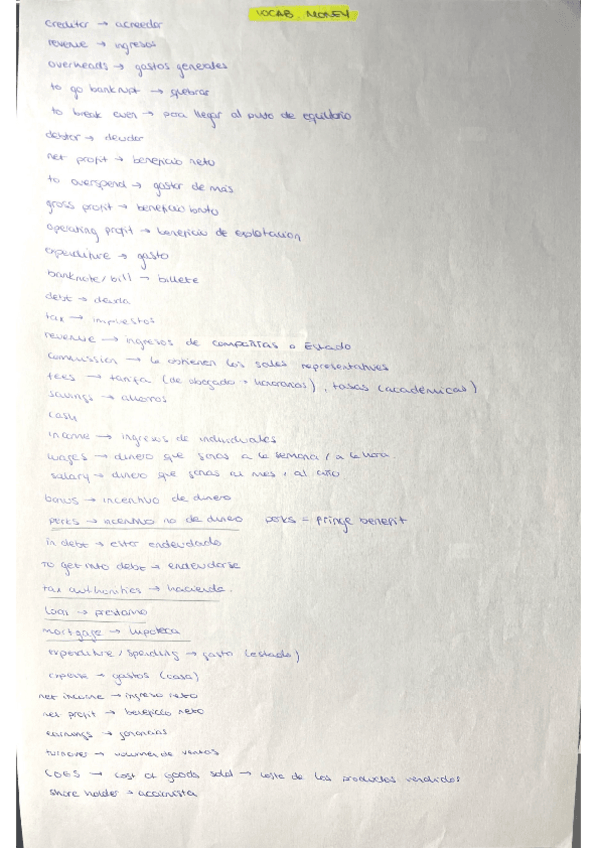 VOCAB. MONEY
creditor → acreedor
revenue → ingresos
overheads → gastos generales
to go bankrupt → quebrar
to break even → para llegar al punto de equilibrio
debtor → deudor
net profit → beneficio neto
to overspend → gastar de más
gross profit → beneficio bruto
operating profit → beneficio de explotación
expenditure → gasto
banknote/bill → billete
debt → deuda
tax → impuestos
revenue → ingresos de compañías o Estado
Comission → la obtienen los sales representatives
fees → tarifa (de abogado → honorarios), tasas (académicas)
savings → ahorros
cash
income → ingresos de individuales
wages → dinero que ganas a la semana / a la hora.
salary → dinero que ganas al mes, al año
bonus → incentivo de dinero
perks → incentivo no de dinero perks = fringe benefit
in debt → estar endeudado
to get into debt → endeudarse
tax authorities → hacienda.
loan → prestamo
mortgage → hipoteca
expenditure/spending → gasto (estado)
expense → gastos (casa)
net income → ingreso neto
net profit → beneficio neto
earnings → ganancias
turnover → volumen de ventas
COGS → cost of goods sold → coste de los productos vendidos
share holder → accionista